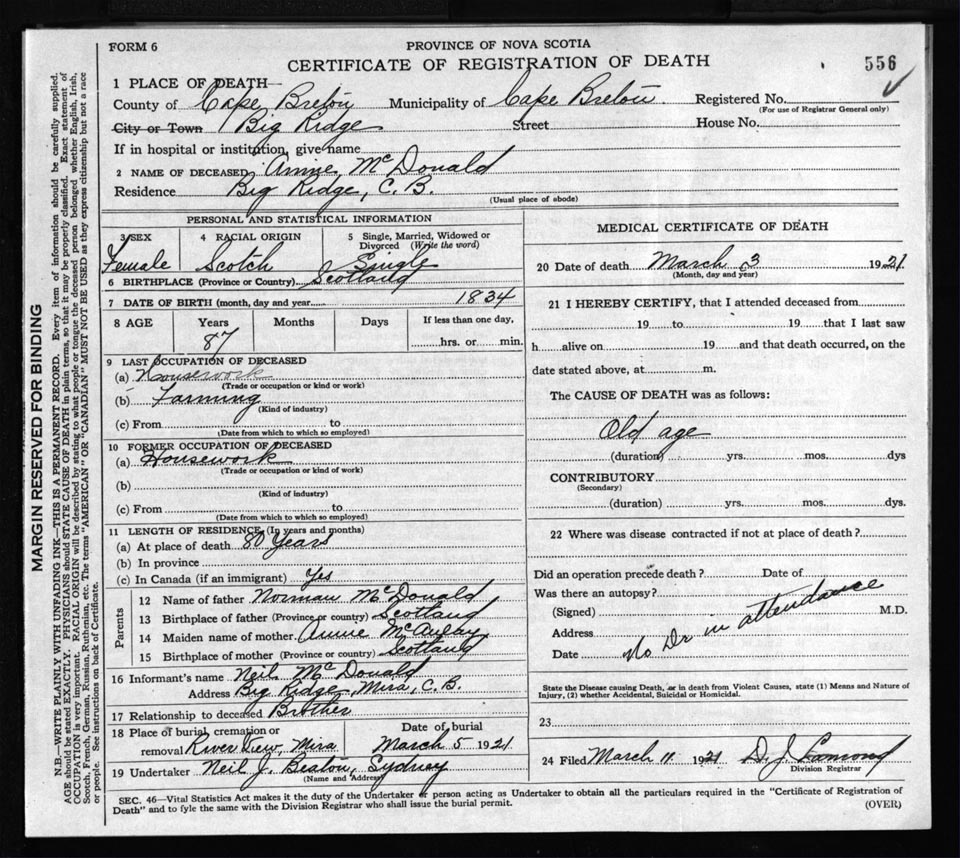 FORM 6
PROVINCE OF NOVA SCOTIA
CERTIFICATE OF REGISTRATION OF DEATH
556
1 PLACE OF DEATH—
County of Cape Breton Municipality of Cape Breton Registered No.
(For use of Registrar General only)
City or Town Big Ridge Street House No.
If in hospital or institution, give name
2 NAME OF DECEASED Annie McDonald
Residence Big Ridge, C. B.
(Usual place of abode)
PERSONAL AND STATISTICAL INFORMATION
3 SEX 4 RACIAL ORIGIN 5 Single, Married, Widowed or Divorced (Write the word)
Female Scotch Single
6 BIRTHPLACE (Province or Country) Scotland
7 DATE OF BIRTH (month, day and year) 1834
8 AGE Years Months Days If less than one day,
87 hrs. or min.
9 LAST OCCUPATION OF DECEASED
(a) Housework
(Trade or occupation or kind or work)
(b) Farming
(Kind of industry)
(c) From to
(Date from which to which so employed)
10 FORMER OCCUPATION OF DECEASED
(a) Housework
(Trade or occupation or kind of work)
(b)
(Kind of industry)
(c) From to
(Date from which to which so employed)
11 LENGTH OF RESIDENCE (In years and months)
(a) At place of death 80 Years
(b) In province
(c) In Canada (if an immigrant) Yes
Parents
12 Name of father Norman McDonald
13 Birthplace of father (Province or country) Scotland
14 Maiden name of mother Annie McAulay
15 Birthplace of mother (Province or country) Scotland
16 Informant's name Neil McDonald
Address Big Ridge, Mira, C. B.
17 Relationship to deceased Brother
18 Place of burial, cremation or Date of burial
removal River View, Mira March 5 1921
19 Undertaker Neil J. Beaton, Sydney
(Name and Address)
MEDICAL CERTIFICATE OF DEATH
20 Date of death March 3 1921
(Month, day and year)
21 I HEREBY CERTIFY, that I attended deceased from
19 to 19 that I last saw
h alive on 19 and that death occurred, on the
date stated above, at m.
The CAUSE OF DEATH was as follows:
Old age
(duration) yrs. mos. dys
CONTRIBUTORY
(Secondary)
(duration) yrs. mos. dys.
22 Where was disease contracted if not at place of death?
Did an operation precede death? Date of
Was there an autopsy?
(Signed) M.D.
Address
Date No Dr in attendance
State the Disease causing Death, or in death from Violent Causes, state (1) Means and Nature of
Injury, (2) whether Accidental, Suicidal or Homicidal.
23
24 Filed March 11 1921 D. J. Lamond
Division Registrar
SEC. 46—Vital Statistics Act makes it the duty of the Undertaker or person acting as Undertaker to obtain all the particulars required in the "Certificate of Registration of
Death" and to fyle the same with the Division Registrar who shall issue the burial permit.
(OVER)
MARGIN RESERVED FOR BINDING
N.B.—WRITE PLAINLY WITH UNFADING INK—THIS IS A PERMANENT RECORD. Every item of information should be carefully supplied.
AGE should be stated EXACTLY. PHYSICIANS should STATE CAUSE OF DEATH in plain terms, so that it may be properly classified. Exact statement of
OCCUPATION is very important. RACIAL ORIGIN will be described by stating to what people or tongue the deceased person belonged whether English, Irish,
Scotch, French, German, Russian, Ruthenian, etc. The terms "AMERICAN" OR "CANADIAN" MUST NOT BE USED as they express citizenship but not a race
or people. See instructions on back of Certificate.